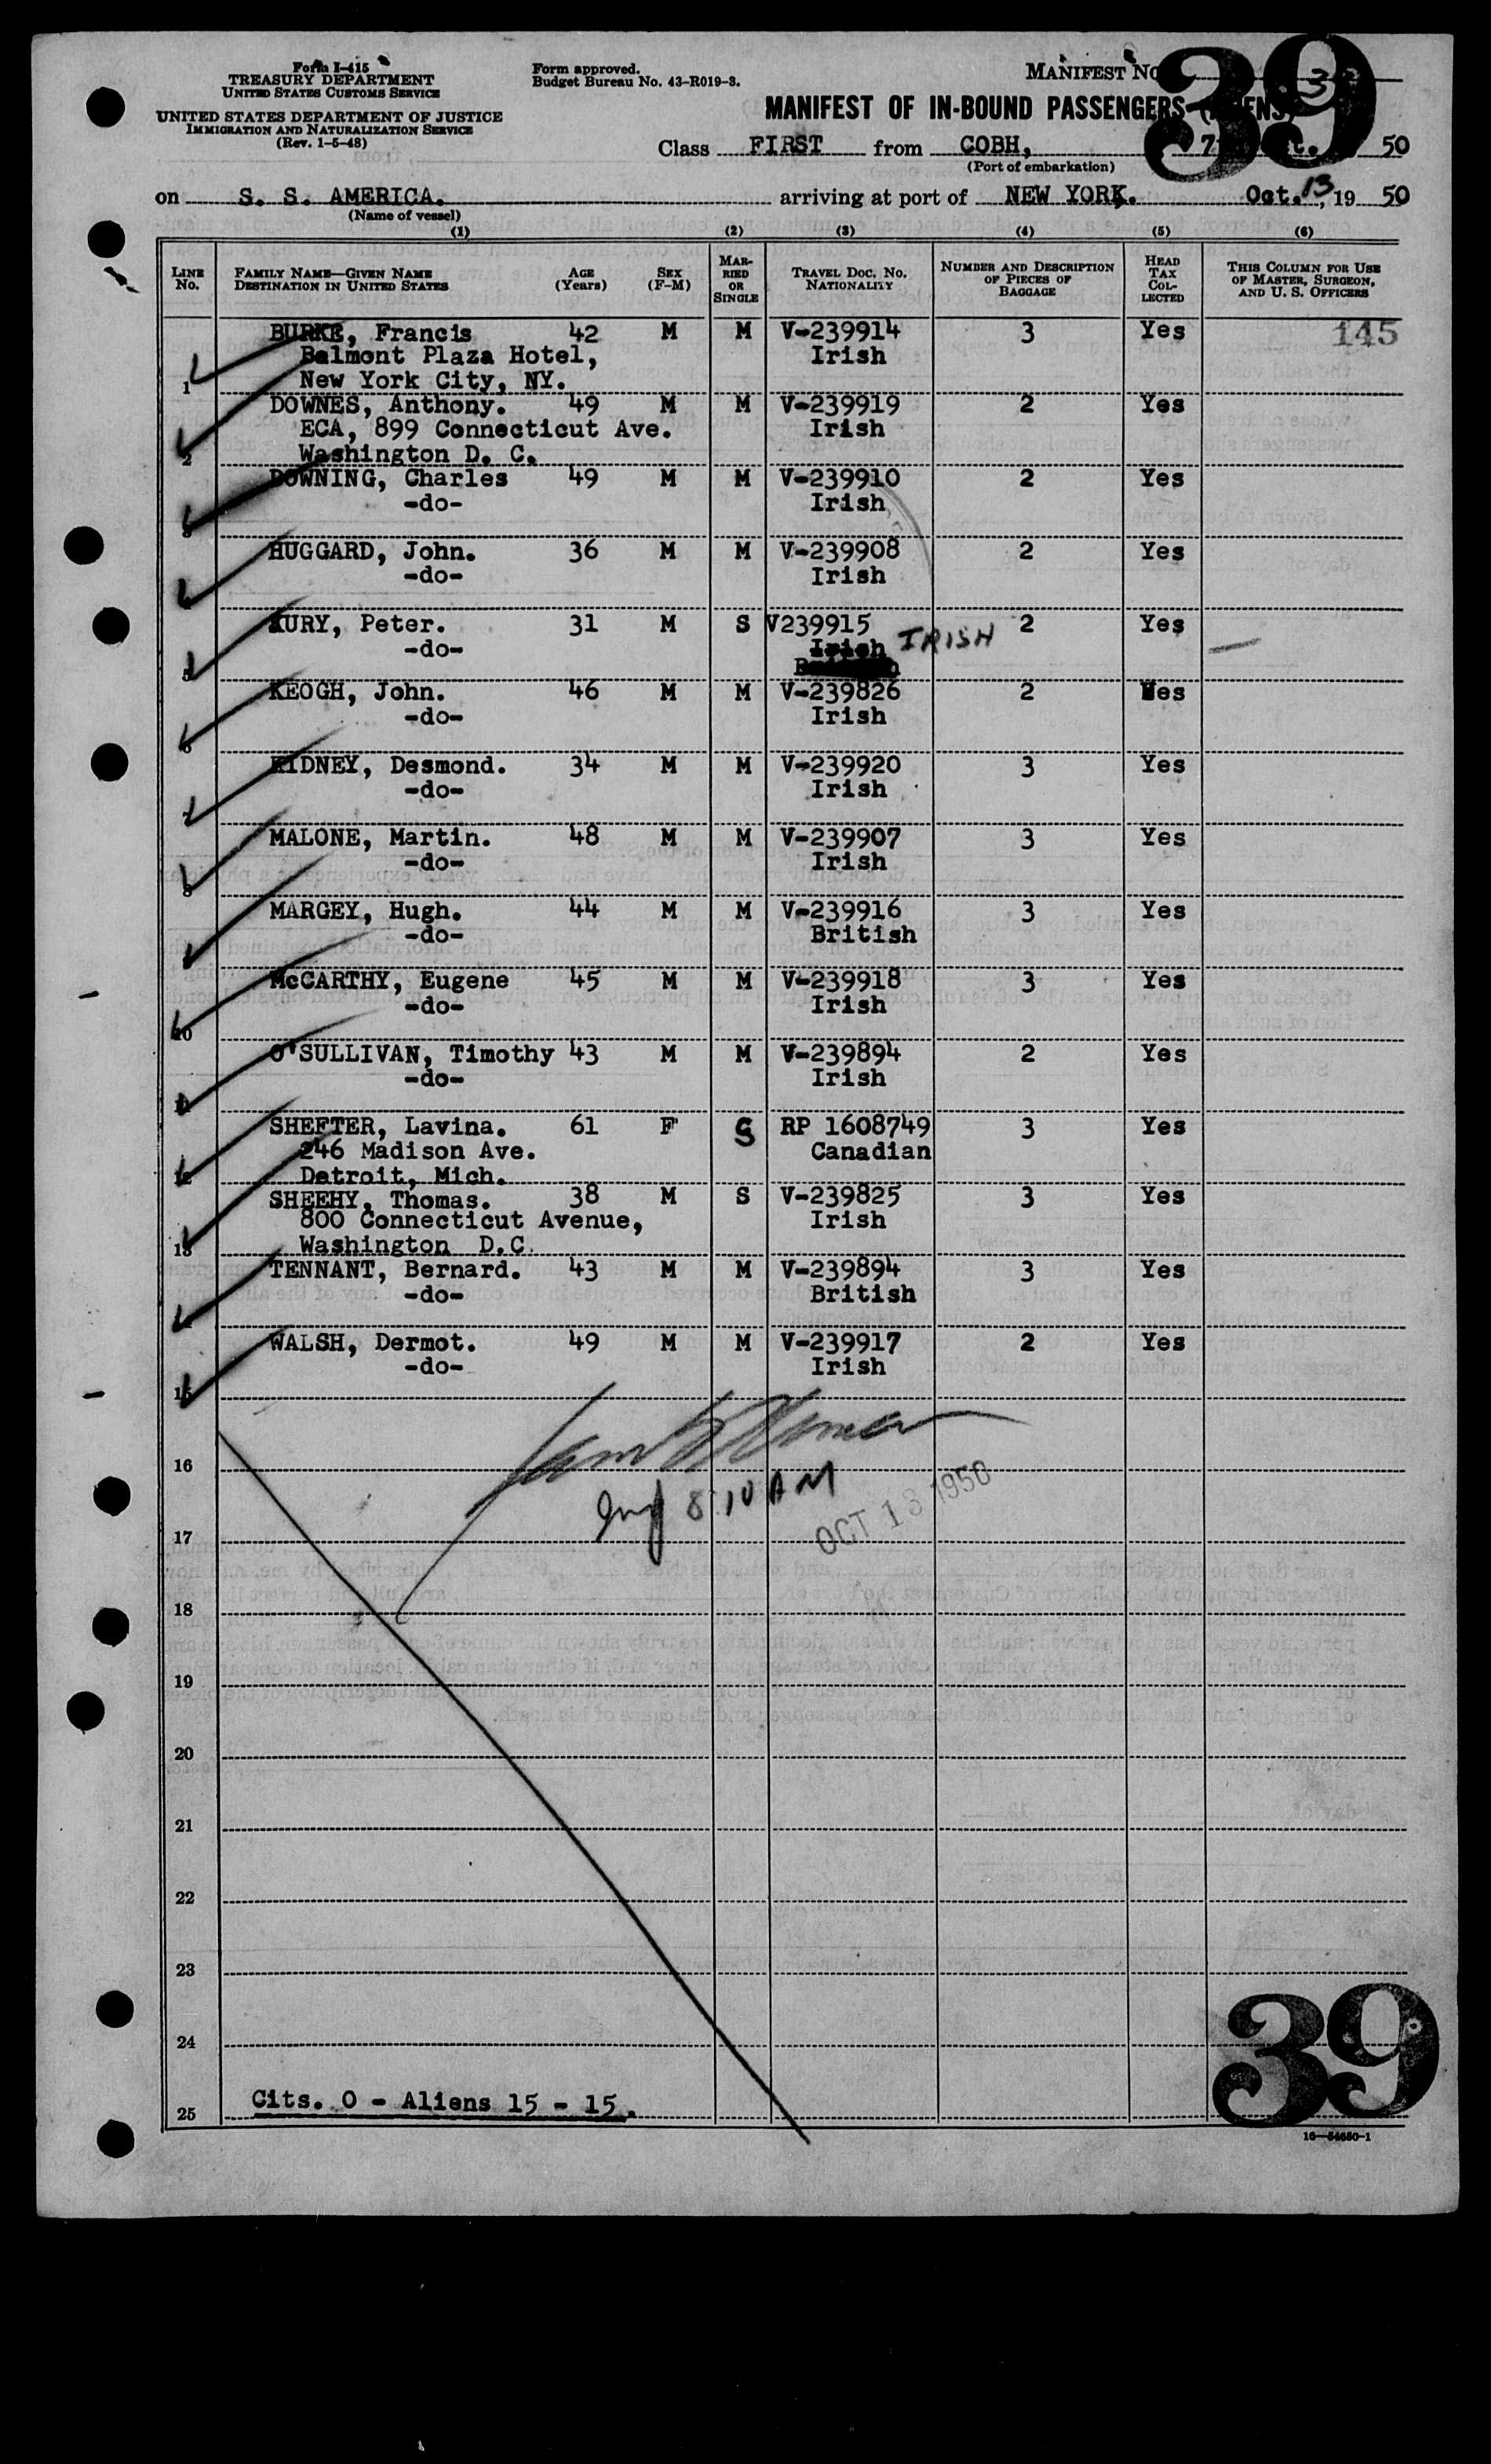 Form I-415
TREASURY DEPARTMENT
UNITED STATES CUSTOMS SERVICE
UNITED STATES DEPARTMENT OF JUSTICE
IMMIGRATION AND NATURALIZATION SERVICE
(Rev. 1-5-48)
Form approved.
Budget Bureau No. 43-R019-3.
MANIFEST NO.
39
MANIFEST OF IN-BOUND PASSENGERS
Class FIRST from COBH, 50
(Port of embarkation)
on S. S. AMERICA. arriving at port of NEW YORK. Oct. 13, 19 50
(Name of vessel)
(1) (2) (3) (4) (5) (6)
LINE NO. FAMILY NAME—GIVEN NAME DESTINATION IN UNITED STATES AGE (Years) SEX (F-M) MARRIED OR SINGLE TRAVEL DOC. NO. NATIONALITY NUMBER AND DESCRIPTION OF PIECES OF BAGGAGE HEAD TAX COLLECTED THIS COLUMN FOR USE OF MASTER, SURGEON, AND U. S. OFFICERS
BURKE, Francis 42 M M V-239914 3 Yes 145
Belmont Plaza Hotel, Irish
1 New York City, NY.
DOWNES, Anthony. 49 M M V-239919 2 Yes
ECA, 899 Connecticut Ave. Irish
2 Washington D. C.
DOWNING, Charles 49 M M V-239910 2 Yes
-do- Irish
3
HUGGARD, John. 36 M M V-239908 2 Yes
-do- Irish
URY, Peter. 31 M S V239915 2 Yes
-do- Irish IRISH
5
KEOGH, John. 46 M M V-239826 2 Yes
-do- Irish
6
KIDNEY, Desmond. 34 M M V-239920 3 Yes
-do- Irish
7
MALONE, Martin. 48 M M V-239907 3 Yes
-do- Irish
8
MARGEY, Hugh. 44 M M V-239916 3 Yes
-do- British
McCARTHY, Eugene 45 M M V-239918 3 Yes
-do- Irish
10
O'SULLIVAN, Timothy 43 M M V-239894 2 Yes
-do- Irish
11
SHEFTER, Lavina. 61 F S RP 1608749 3 Yes
246 Madison Ave. Canadian
12 Detroit, Mich.
SHEEHY, Thomas. 38 M S V-239825 3 Yes
800 Connecticut Avenue, Irish
13 Washington D.C.
TENNANT, Bernard. 43 M M V-239894 3 Yes
-do- British
WALSH, Dermot. 49 M M V-239917 2 Yes
-do- Irish
15
16
8 10 AM
OCT 13 1950
17
18
19
20
21
22
23
24
25 Cits. 0 - Aliens 15 - 15.
39
16—54650-1